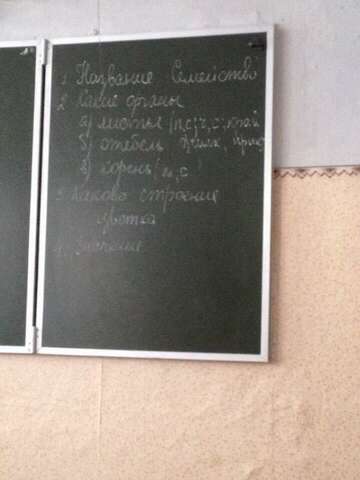 1. Название Семейство
2. Какие органы
а) листья (п, с, ч, с, край
б) стебель
в) корень (м, с)
3. Каково строение
цветка
4. Значение